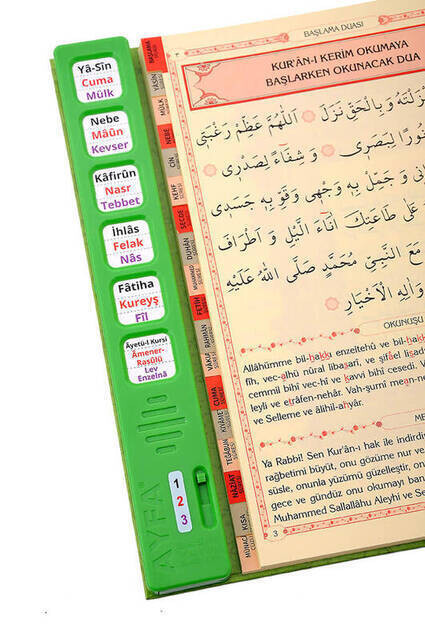 Yâ-Sîn
Cuma
Mülk
Nebe
Mâûn
Kevser
Kâfirûn
Nasr
Tebbet
İhlâs
Felak
Nâs
Fâtiha
Kureyş
Fîl
Âyetü-l Kürsi
Âmener-
Rasûlü
Lev
Enzelnâ
1
2
3
AYFA
BAŞLAMA
DUASI
YÂSÎN
MÜLK
NEBE
CİN
KEHF
SECDE
DUHÂN
MUHAMMED
FETİH
RAHMÂN
VAKIA
CUMA
KIYÂME
TEĞABUN
NÂZİÂT
KISA
BAŞLAMA DUASI
KUR'ÂN-I KERİM OKUMAYA
BAŞLARKEN OKUNACAK DUA
وَبِالْحَقِّ نَزَلَ ۞ اَللّٰهُمَّ عَظِّمْ رَغْبَتِي
نُورًا لِبَصَرِي ۞ وَ شِفَٓاءً لِصَدْرِي ۞
وَ جَمِّلْ بِهِ وَجْهِي وَقَوِّ بِهِ جَسَدِي
عَلٰى طَاعَتِكَ اٰنَٓاءَ الَّيْلِ وَ اَطْرَافَ
مَعَ النَّبِيِّ مُحَمَّدٍ صَلَّى اللّٰهُ عَلَيْهِ
وَاٰلِهِ الْاَخْيَارِ ۞
OKUNUŞU
Allâhümme bil-hakkı enzeltehû ve bil-h
fîh, vec-alhü nûral libasarî, ve şifâel lisad
cemmil bihî vec-hî ve kavvi bihî cesedî. V
leyli ve etrâfen-nehâr. Vah-şurnî mean-ne
ve Sellleme ve âlihil-ahyâr.
ME
Ya Rabbi! Sen Kur'ân-ı hak ile indirdin
rağbetimi büyüt, onu gözüme nur ve
süsle, onunla yüzümü güzelleştir, on
gece ve gündüz onu okumayı ban
Muhammed Sallallâhu Aleyhi ve Se
3